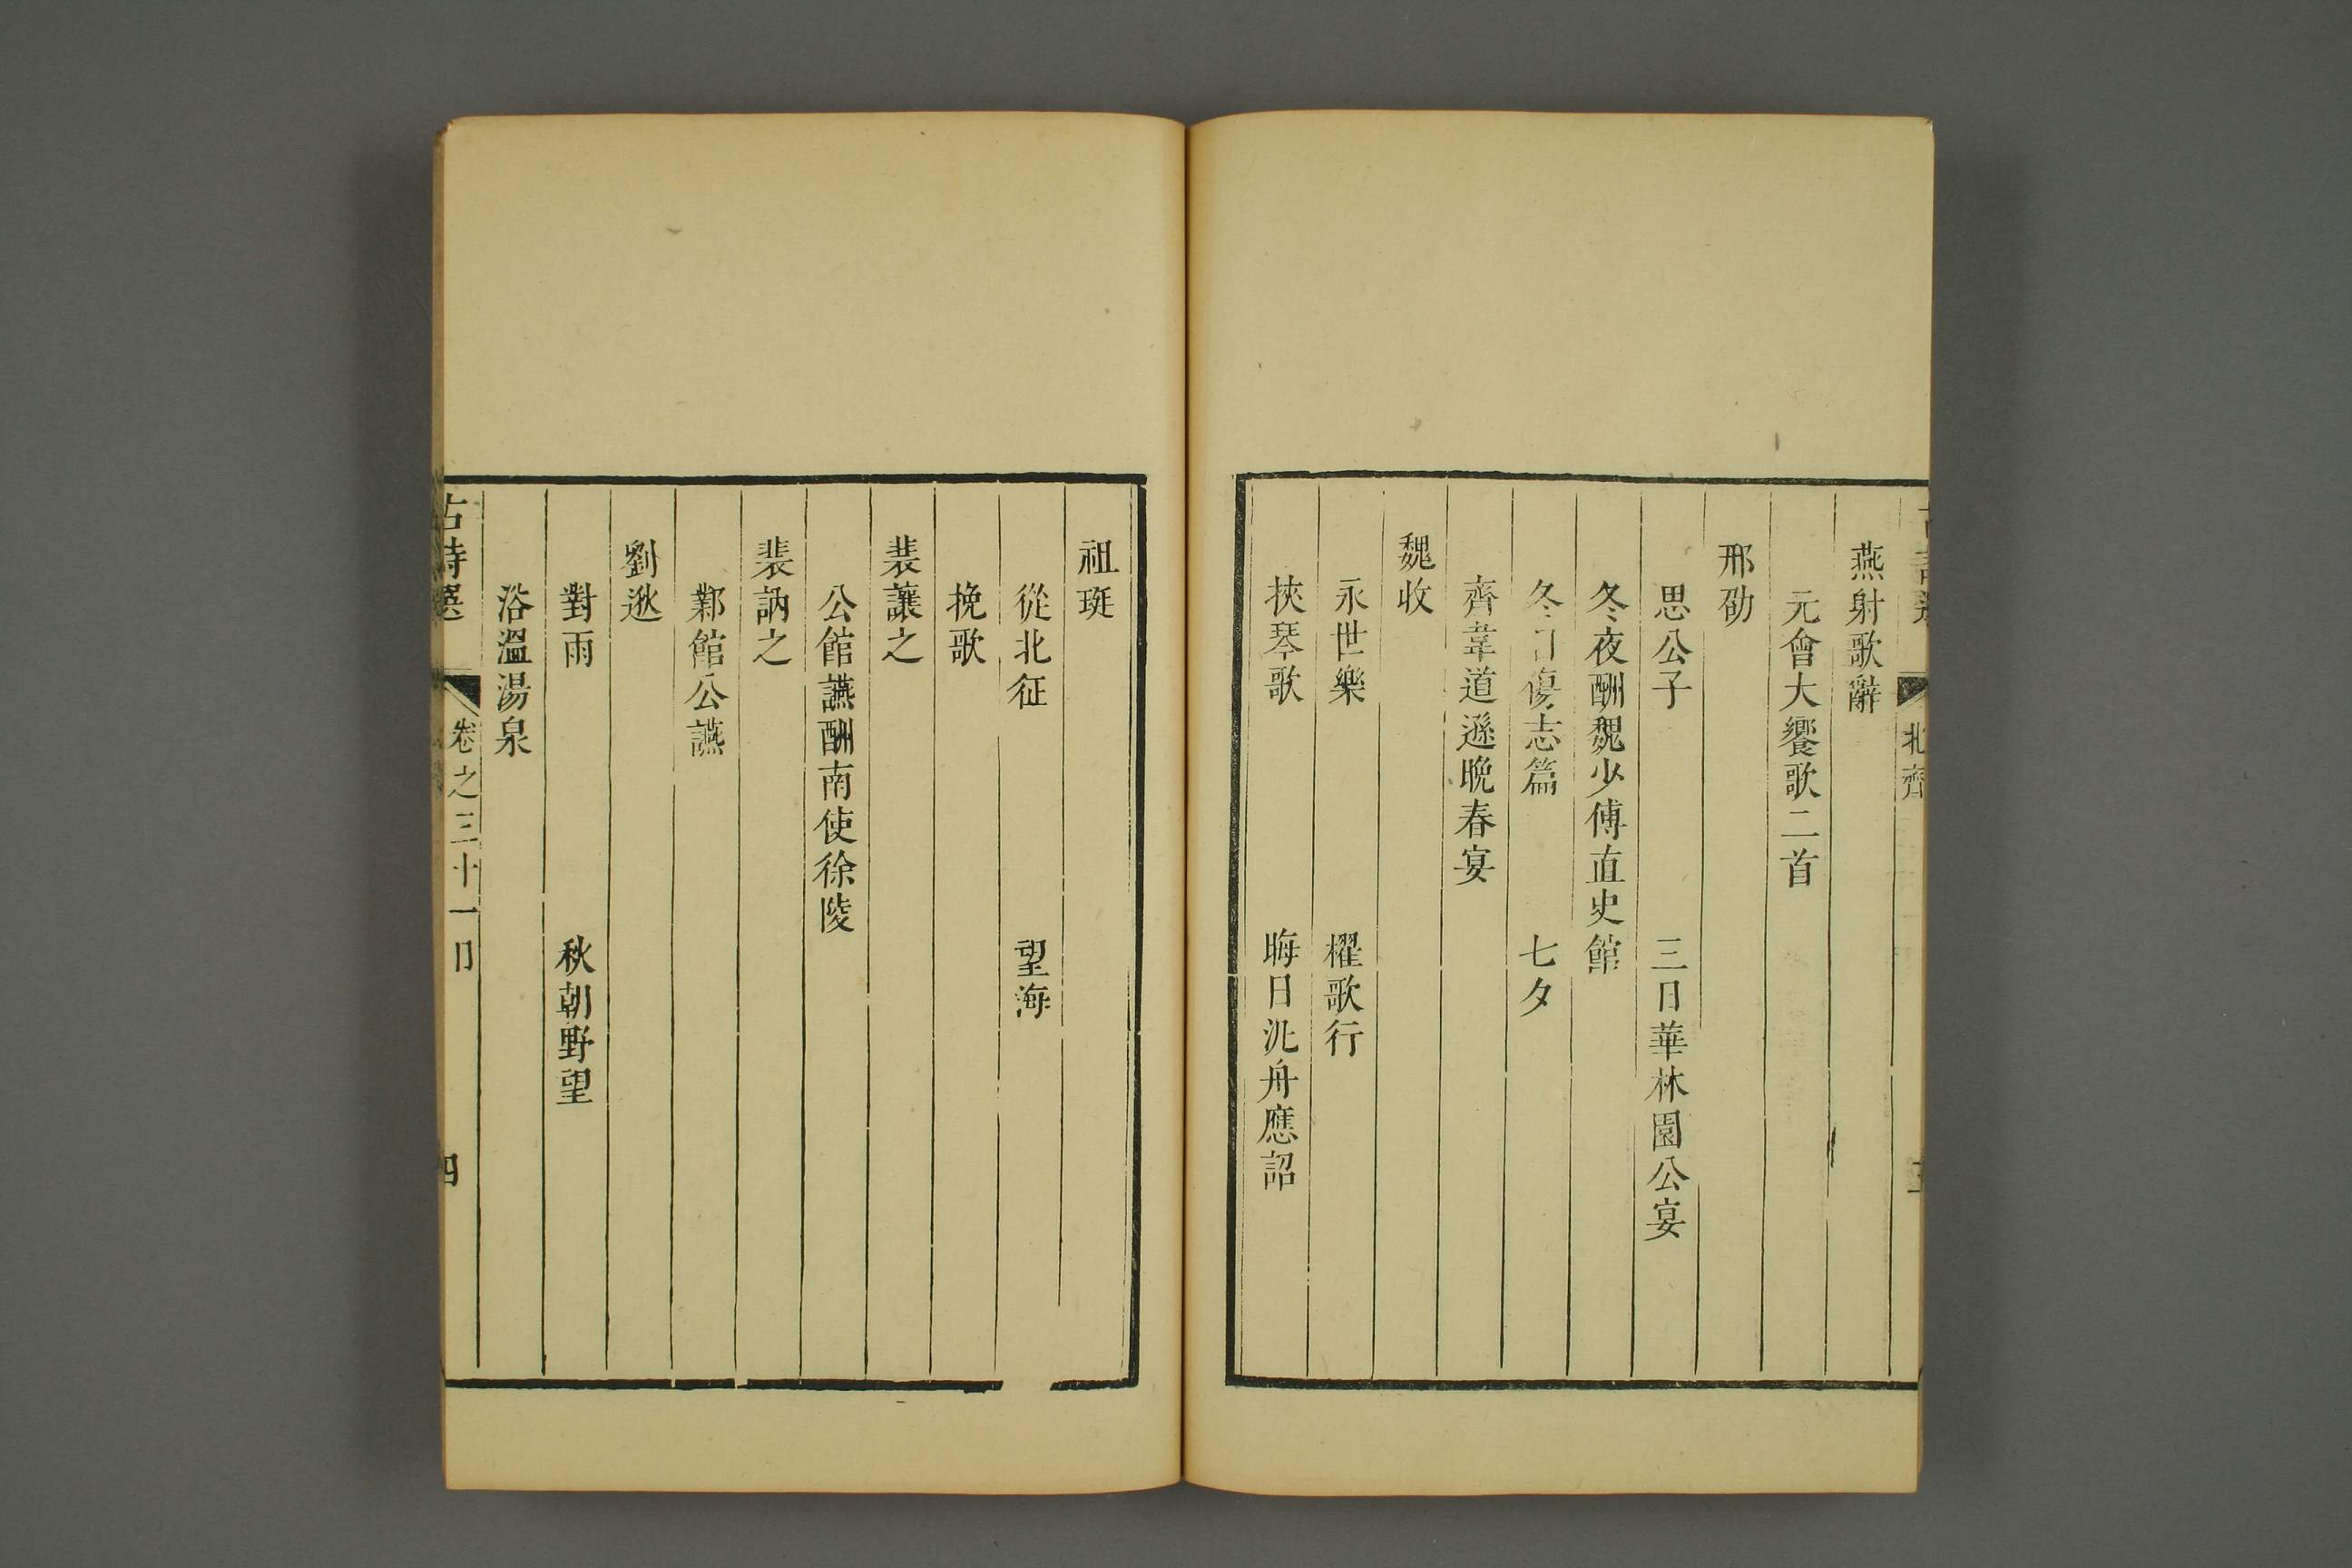 北齊
燕射歌辭
元會大饗歌二首
邢劭
思公子 三日華林園公宴
冬夜酬魏少傅直史館
冬日傷志篇 七夕
齊韋道遜晩春宴
魏收
永世樂 櫂歌行
挾琴歌 晦日汎舟應詔
祖珽
從北征 望海
挽歌
裴讓之
公館讌酬南使徐陵
裴訥之
鄴館公讌
劉逖
對雨 秋朝野望
浴溫湯泉
古詩選 卷之三十一目 四